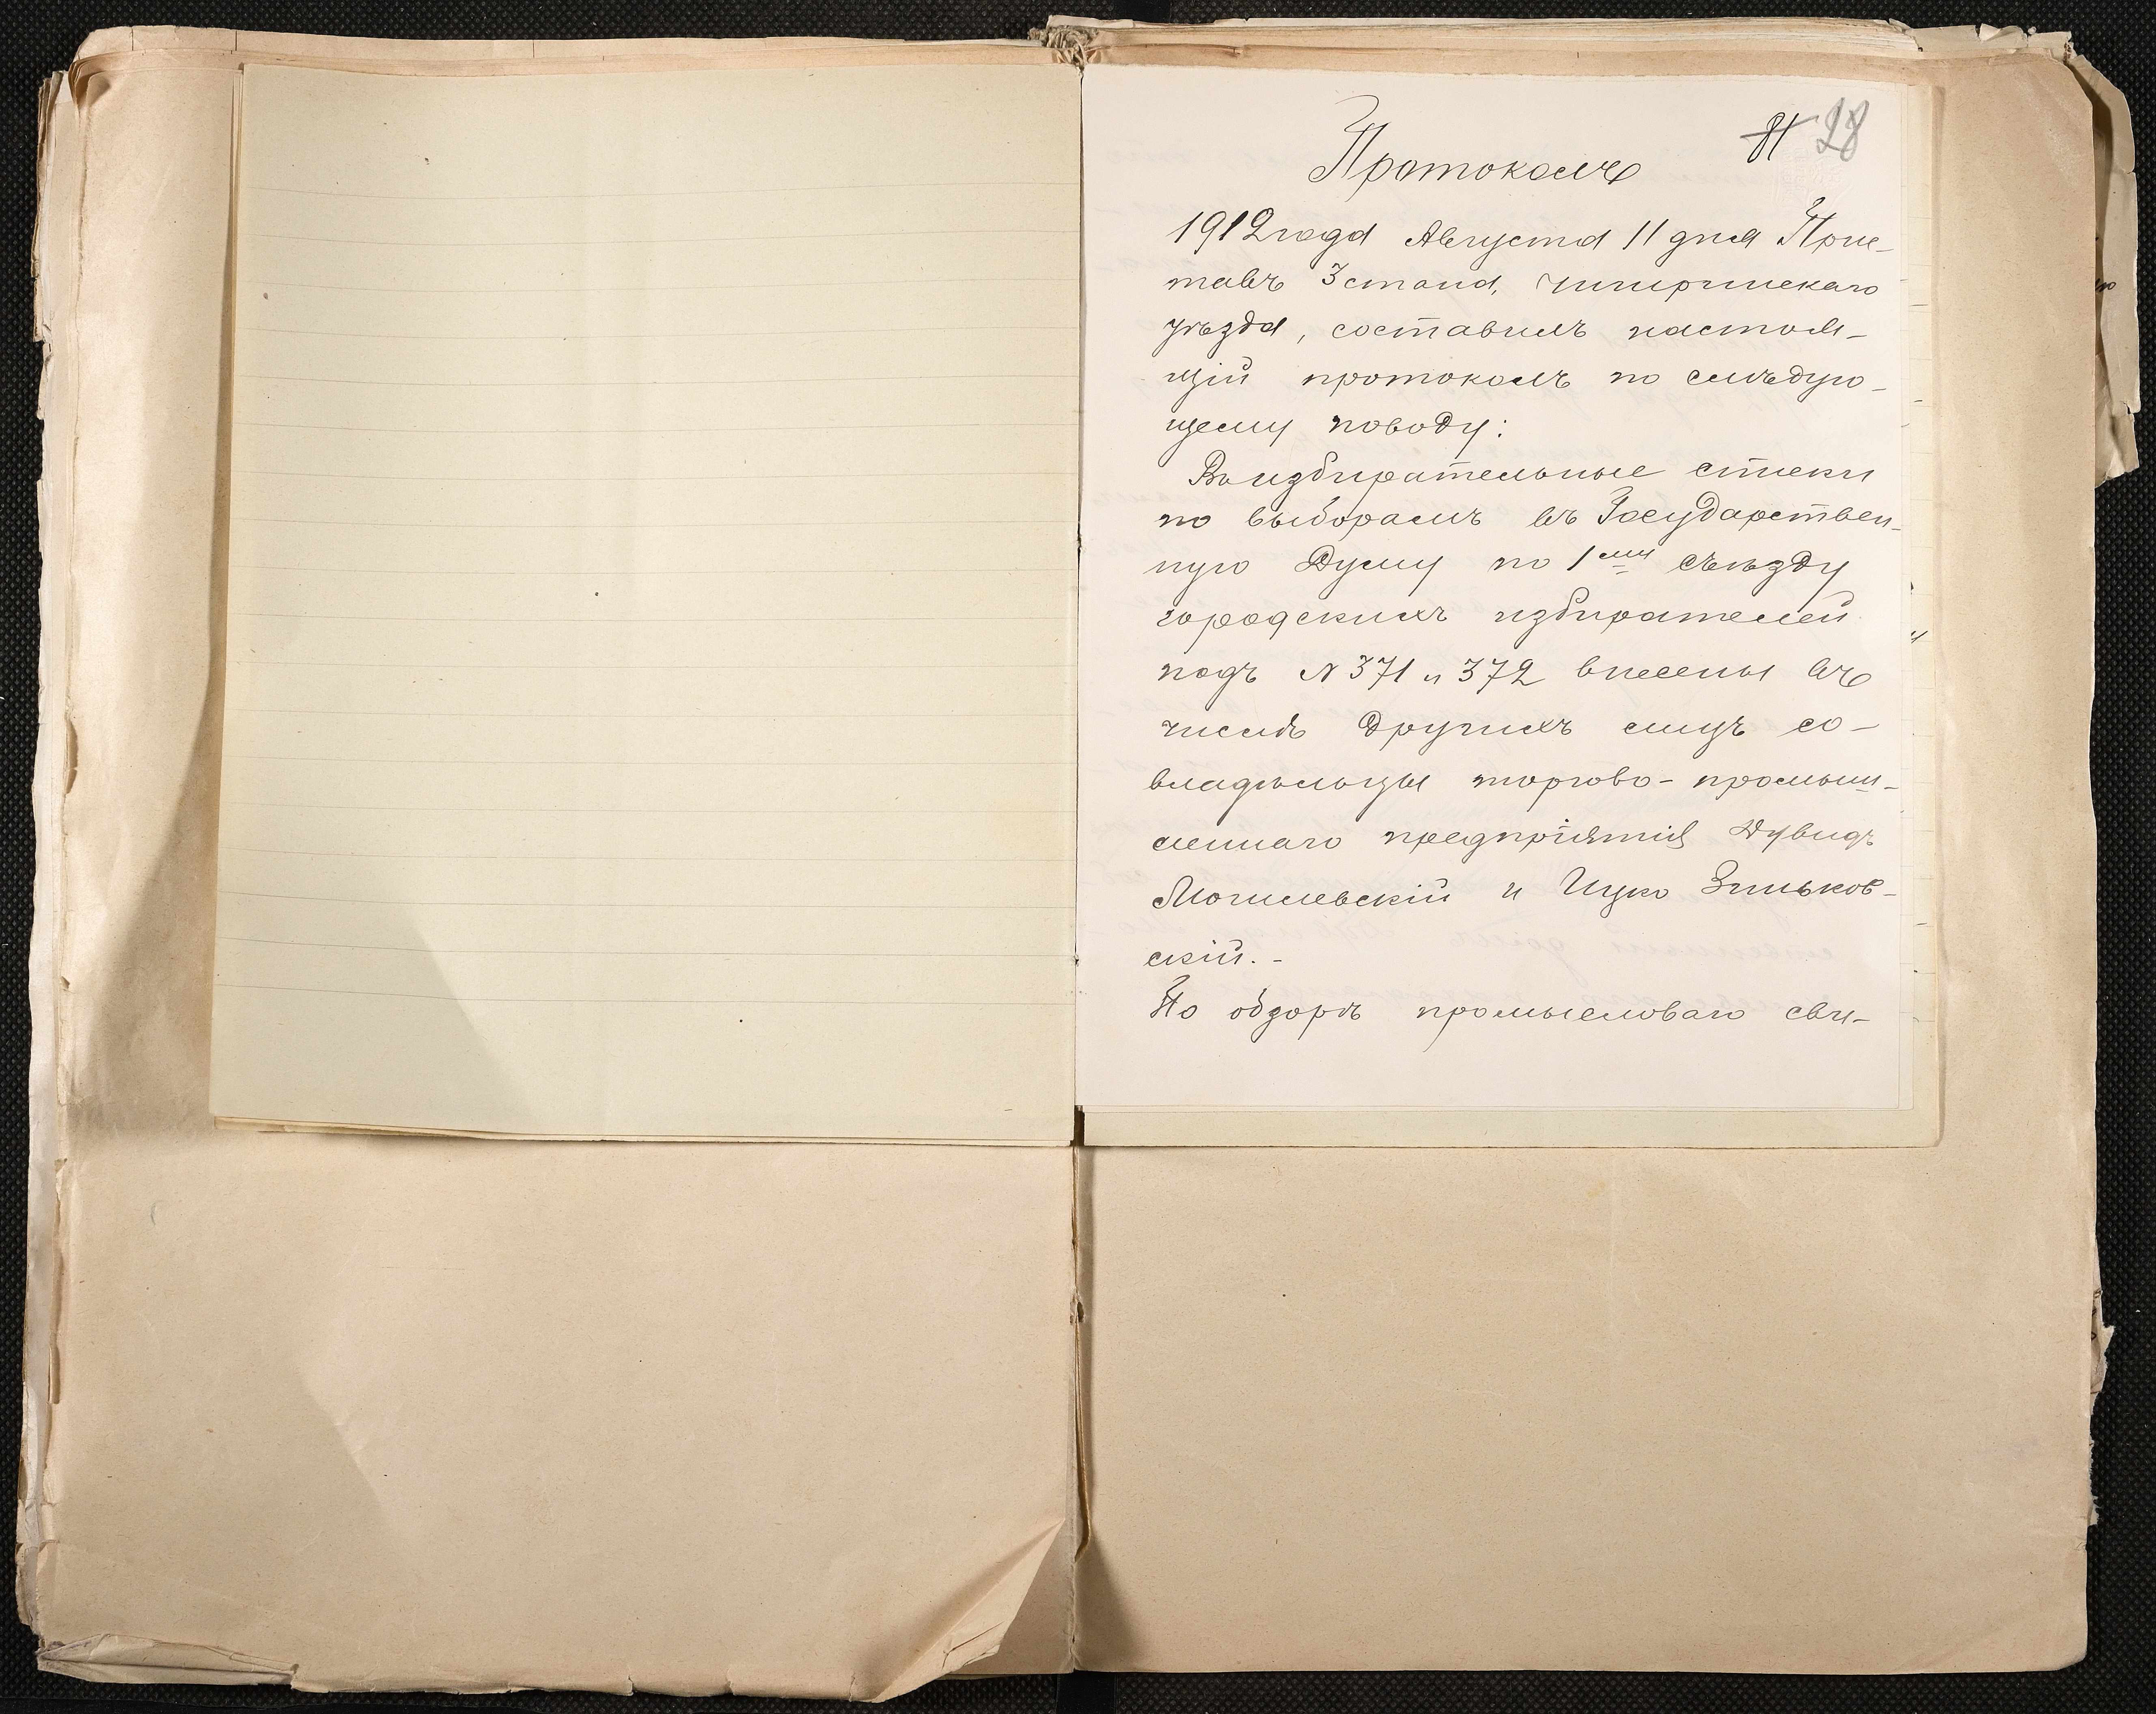 81 28
Протоколъ
1912 года Августа 11 дня При-
ставъ 3 стана, Чигиринскаго
уѣзда, составилъ настоя-
щій протоколъ по слѣдую-
щему поводу:
Въ избирательные списки
по выборамъ въ Государствен-
ную Думу по 1му съѣзду
городскихъ избирателей
подъ № 371 и 372 внесены въ
числѣ другихъ лицъ со-
владѣльцы торгово-промыш-
леннаго предпріятія Дувидъ
Могилевскій и Ицко Зиньков-
скій.-
По обзорѣ промысловаго сви-